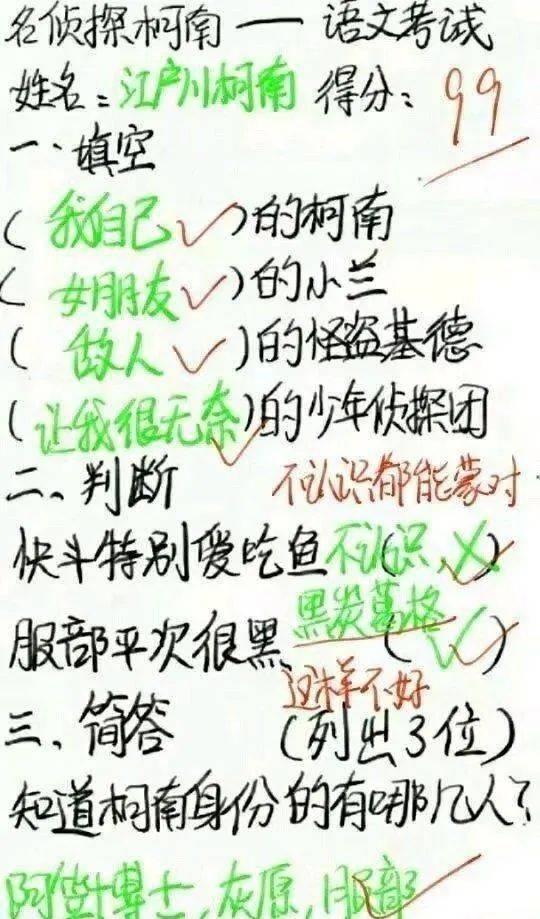 名侦探柯南 — 语文考试
姓名：江户川柯南 得分：99
一、填空
（我自己✓）的柯南
（女朋友✓）的小兰
（敌人✓）的怪盗基德
（让我很无奈）的少年侦探团
二、判断 不认识都能蒙对
快斗特别爱吃鱼 不认识（×）
服部平次很黑 黑炭慕格（✓）
这样不好
三、简答 （列出3位）
知道柯南身份的有哪几人？
阿笠博士，灰原，服部